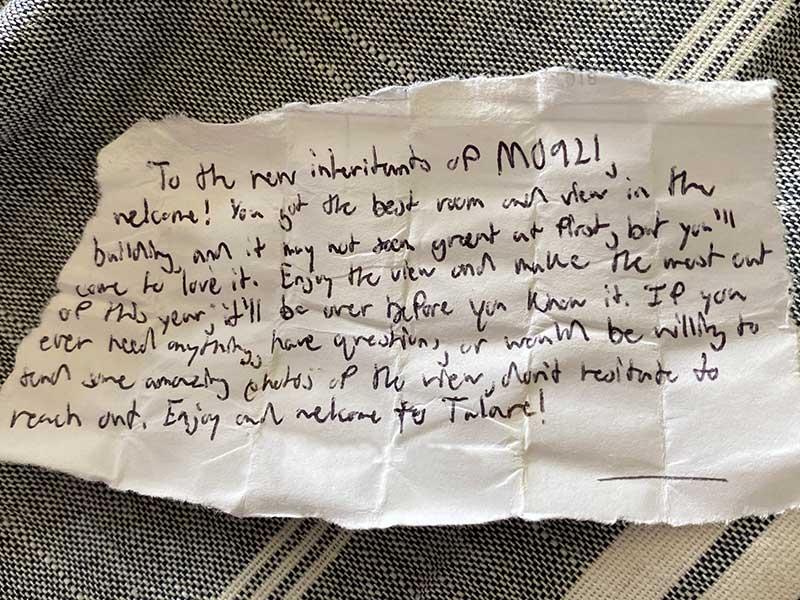 To the new inheritants of M0921,
welcome! You got the best room and view in the
building, and it may not seem great at first, but you'll
come to love it. Enjoy the view and make the most out
of this year, it'll be over before you know it. If you
ever need anything, have questions, or would be willing to
send some amazing photos of the view, don't hesitate to
reach out. Enjoy and welcome to Tulane!